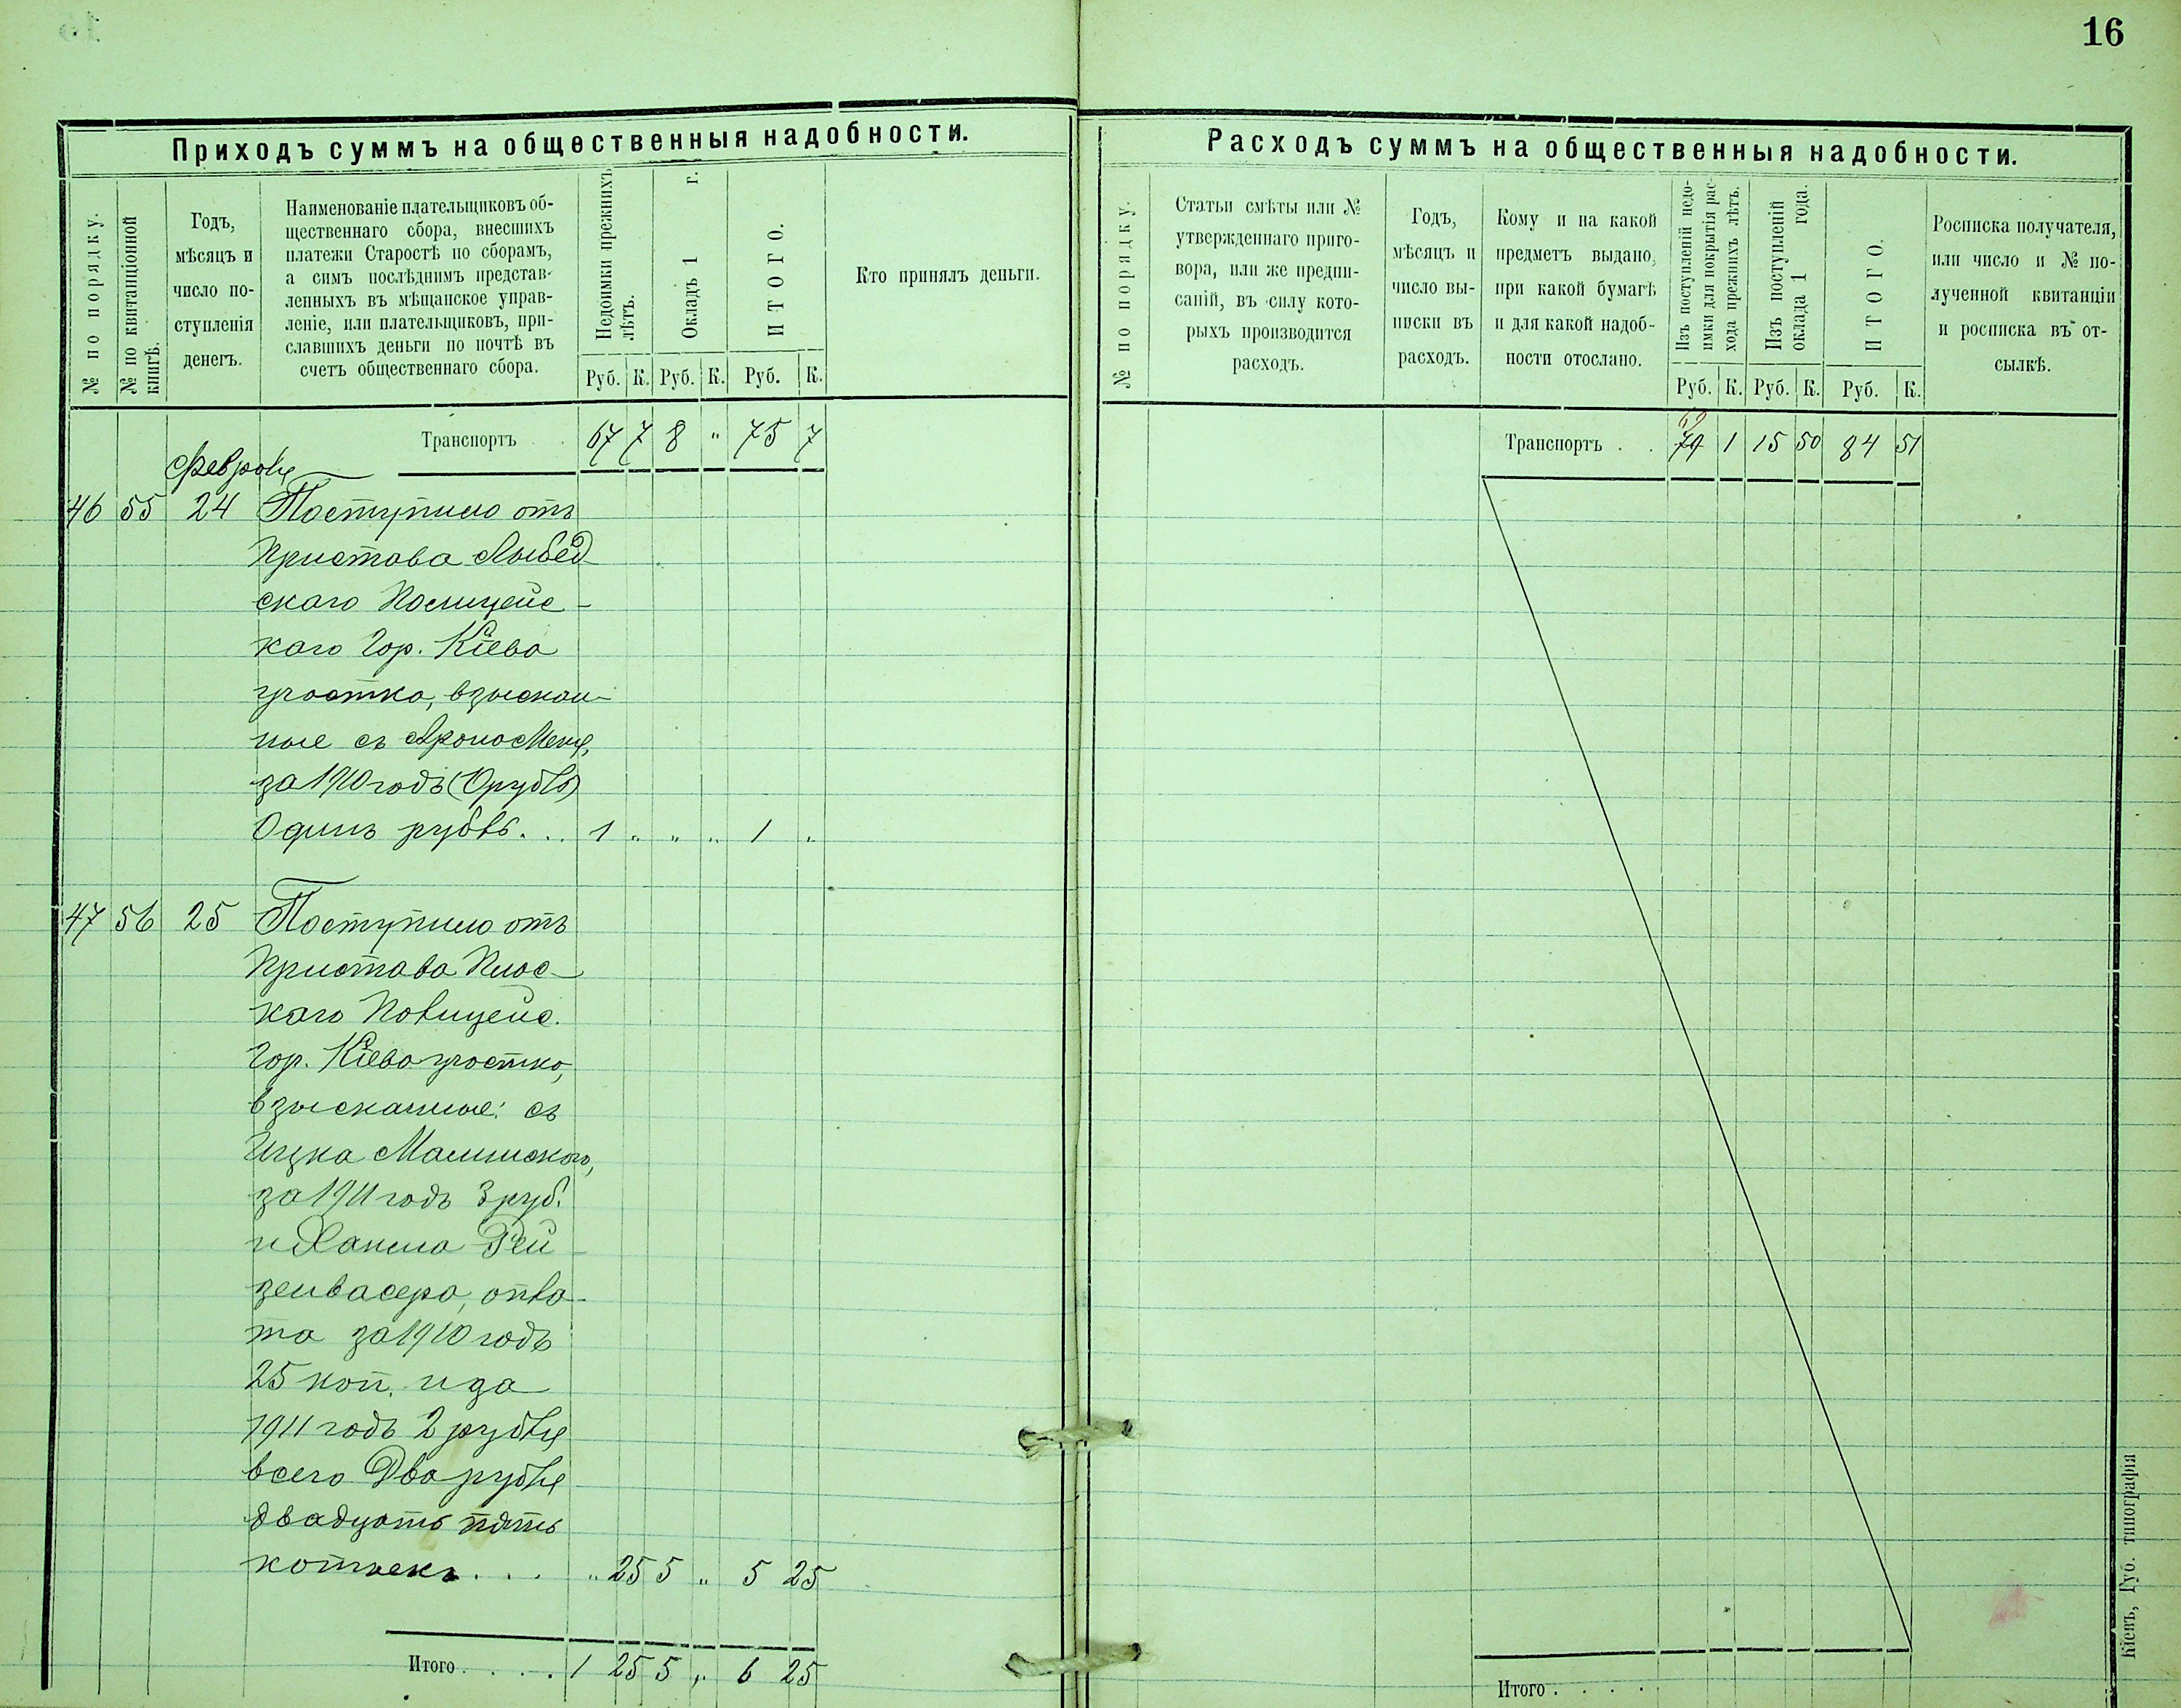 16
Приходъ суммъ на общественныя надобности.
№ по порядку.
№ по квитанціонной
книгѣ.
Годъ,
мѣсяцъ и
число по-
ступленія
денегъ.
Наименованіе плательщиковъ об-
щественнаго сбора, внесшихъ
платежи Старостѣ по сборамъ,
а симъ послѣднимъ представ-
ленныхъ въ мѣщанское управ-
леніе, или плательщиковъ, при-
славшихъ деньги по почтѣ въ
счетъ общественнаго сбора.
Недоимки прежнихъ
лѣтъ.
Окладъ 1 г.
ИТОГО.
Руб. К. Руб. К. Руб. К.
Кто принялъ деньги.
Транспортъ . . 67 7 8 " 75 7
Февраля
46 55 24 Поступило отъ
Пристава Лыбед-
скаго Полицейс-
каго Гор. Кіева
участка, взыскан-
ные съ
за 1910 годъ
Одинъ рубль... 1 " " " 1 "
47 56 25 Поступило отъ
Пристава Плос-
каго Полицейс.
Гор. Кіева участка,
взысканные: съ
Ицка Малинскаго,
за 1911 годъ 3 руб.
и Ханила Рей-
зенвасера, опла-
та за 1910 годъ
25 коп. и за
1911 годъ 2 рубля
всего Два рубля
двадцать пять
копѣекъ... " 25 5 " 5 25
Итого.... 1 25 5 " 6 25
Расходъ суммъ на общественныя надобности.
№ по порядку.
Статьи смѣты или №
утвержденнаго приго-
вора, или же предпи-
саній, въ силу кото-
рыхъ производится
расходъ.
Годъ,
мѣсяцъ и
число вы-
писки въ
расходъ.
Кому и на какой
предметъ выдано,
при какой бумагѣ
и для какой надоб-
ности отослано.
Изъ поступленій недо-
имки для покрытія рас-
хода прежнихъ лѣтъ.
Изъ поступленій
оклада 1 года.
ИТОГО.
Руб. К. Руб. К. Руб. К.
Росписка получателя,
или число и № по-
лученной квитанціи
и росписка въ от-
сылкѣ.
69
Транспортъ . . 79 1 15 50 84 51
Итого....
Кіевъ, Губ. типографія